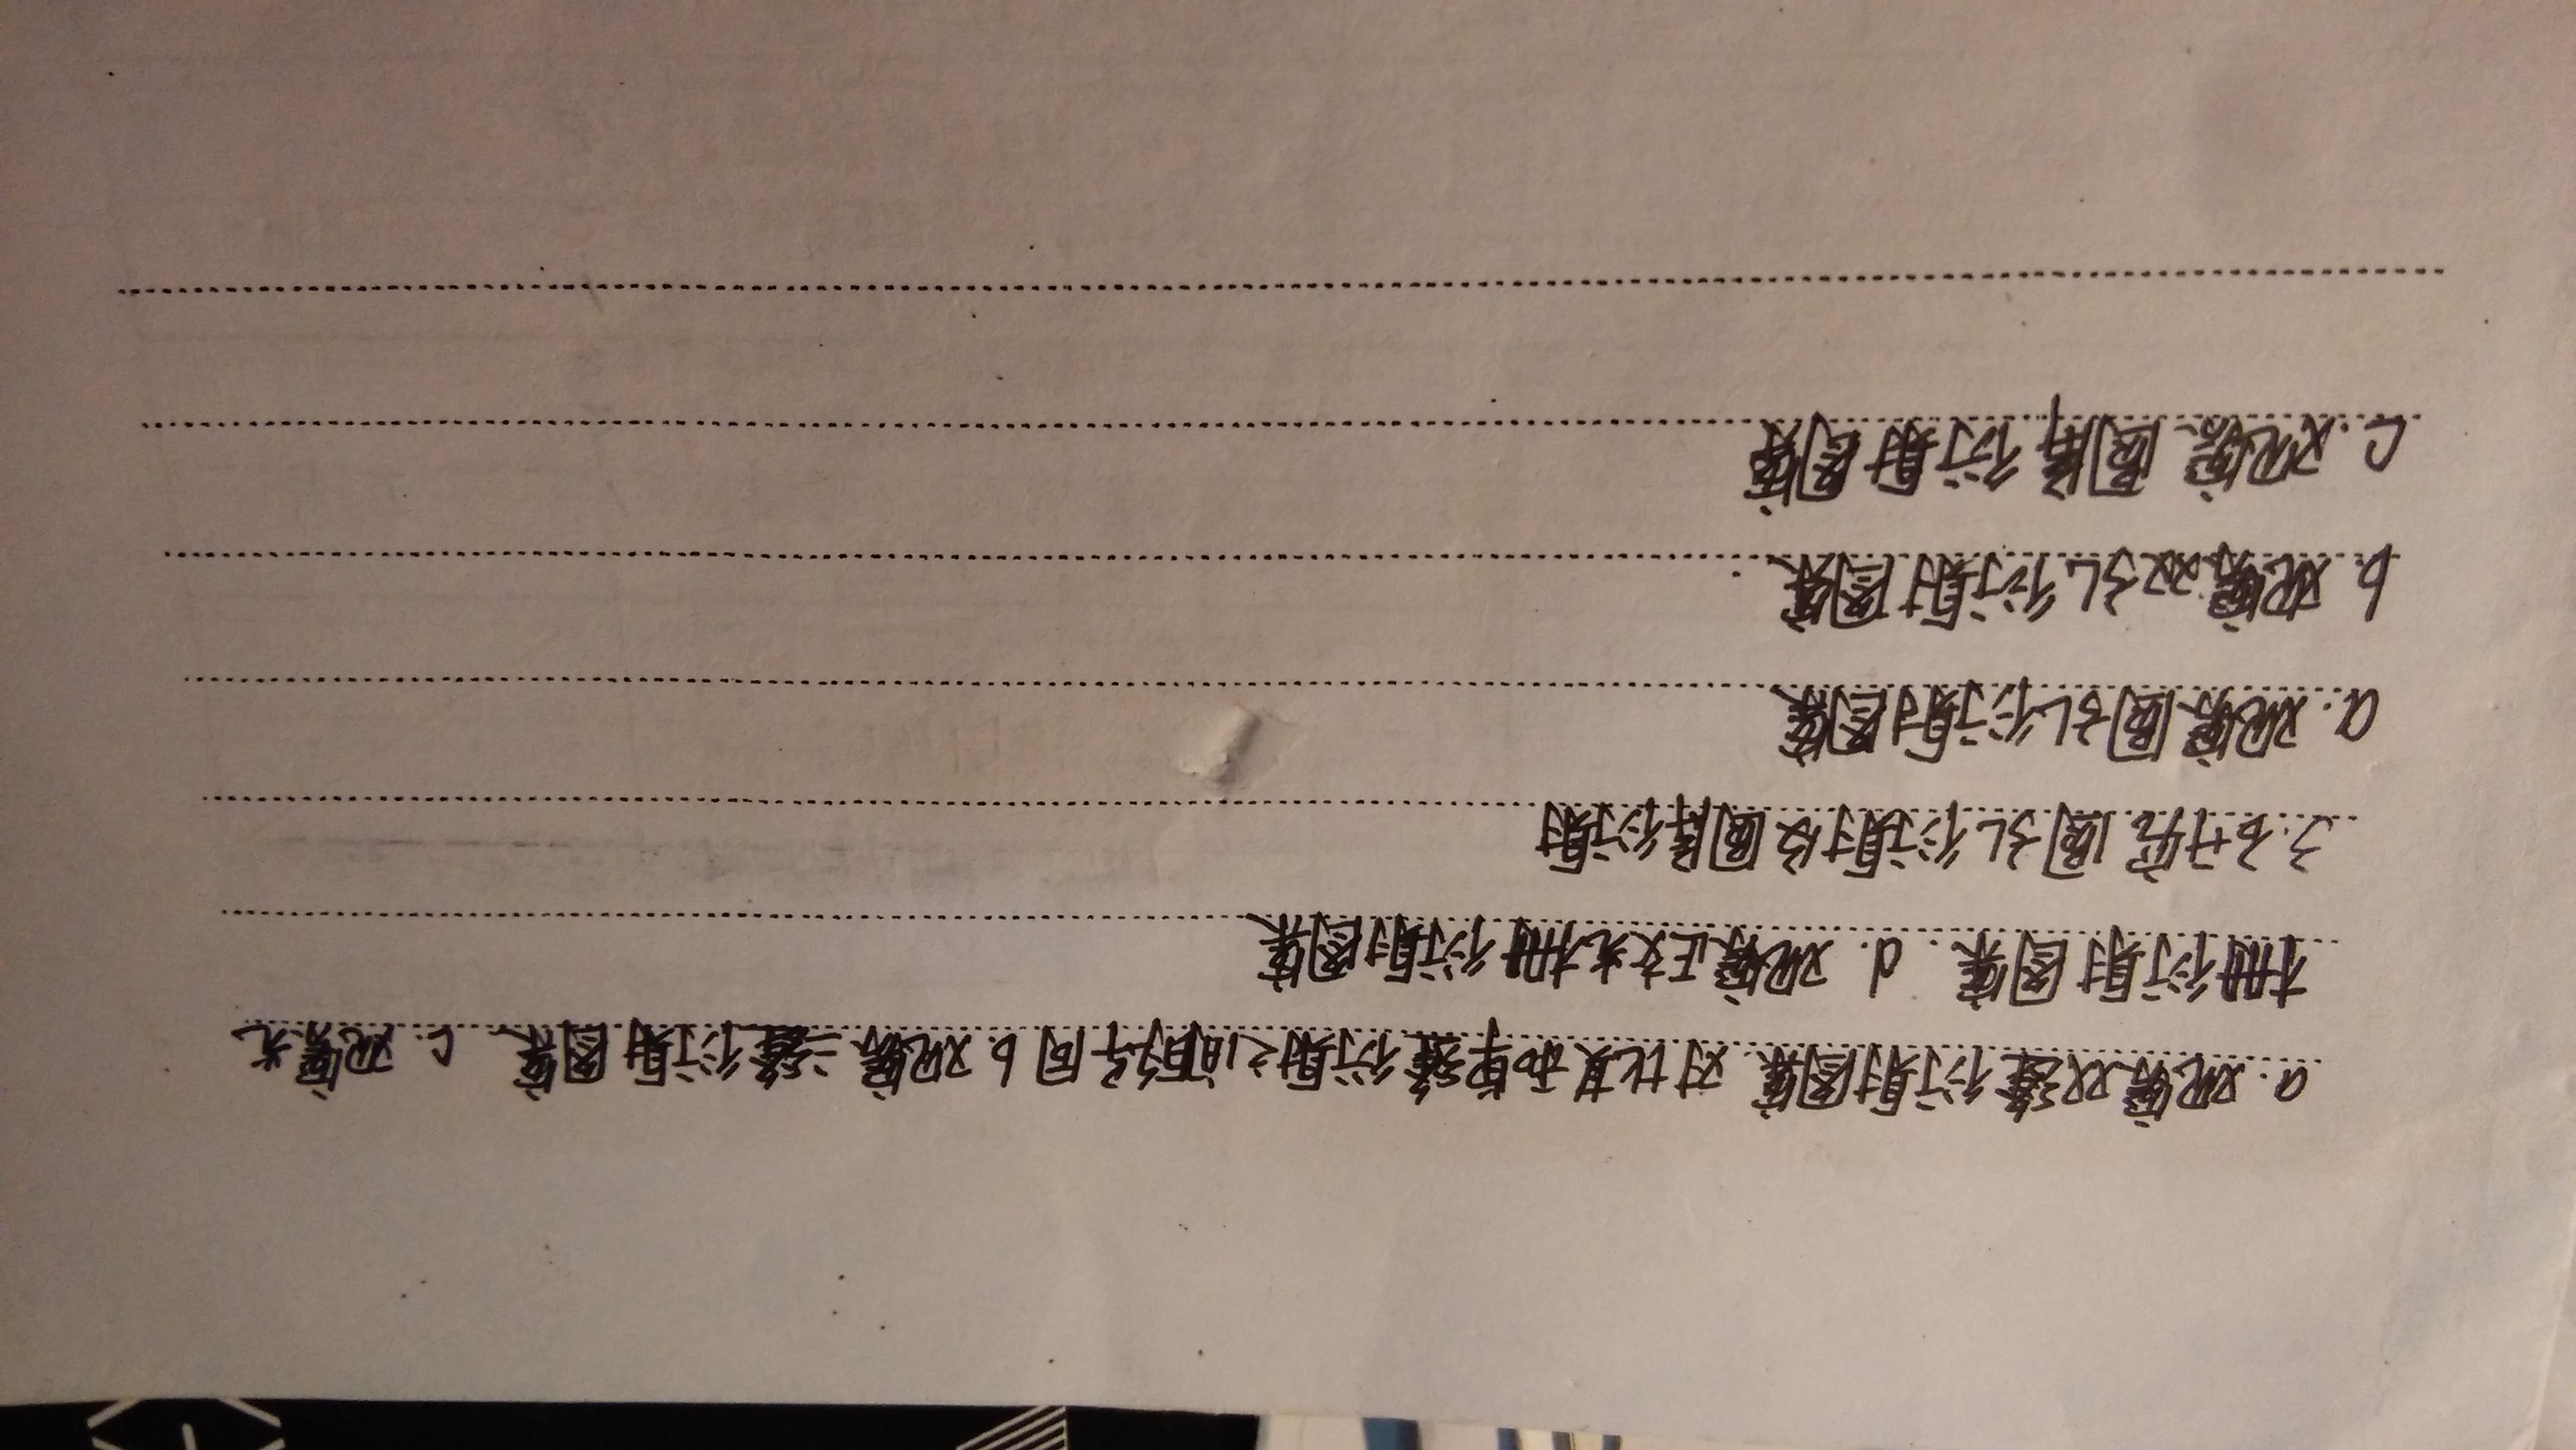 a. 观察双缝衍射图案. 对比其和单缝衍射之间的异同 b. 观察三缝衍射图案 c. 观察光
栅衍射图案. d. 观察正交光栅衍射图案
3. 研究圆孔衍射及圆屏衍射
a. 观察圆孔衍射图案
b. 观察双孔衍射图案
c. 观察圆屏衍射图案